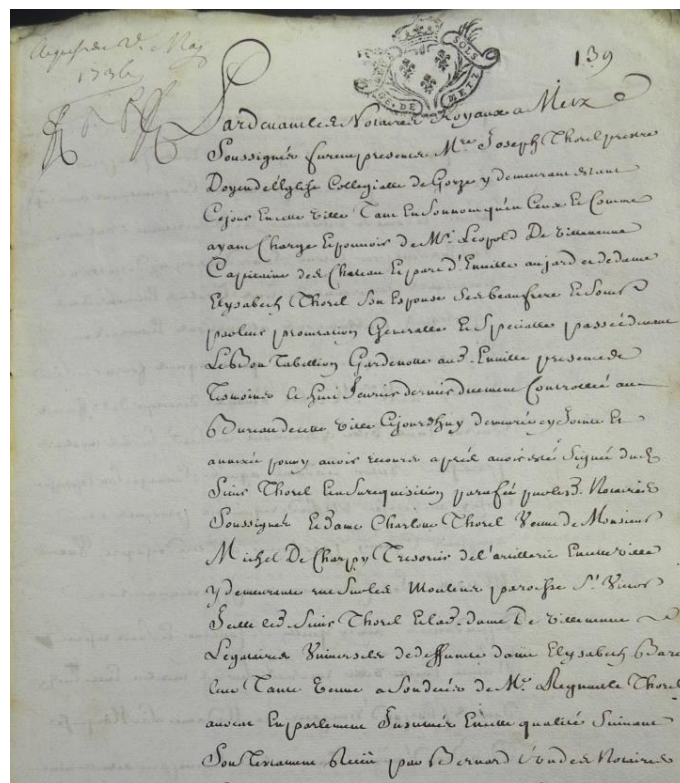 SOLS
GE. DE METZ
139
1736
Pardevant les Notaires Royaux a Metz
Soussignés furent presens Mre Joseph Thorel prestre
Doyen de l'Eglise Collegialle de Gorze y demeurant estant
Cejour En cette ville Tant En son nom qu'en Ceux Et Comme
ayant Charge Et pouvoir de Mr Leopold De Villeneuve
Capitaine des Chateau Et parc d'Einville au jard et de dame
Elysabeth Thorel Son Espouse Ses beaufrere Et Soeur
par leur procuration Generalle Et Specialle passée devant
Le Bon Tabellion Gardenotte aud. Einville presence de
Temoins le huit fevrier dernier duement Controllée au
Bureau de cette ville Cejourdhuy demeurée cy Jointe Et
annexée pour y avoir recours aprés avoir esté Signée dud.
Sieur Thorel Et a Sa requisition parafée par lesd. Notaires
Soussignés Et dame Charlotte Thorel Veuve de Monsieur
Michel De Charpy Tresorier de l'artillerie En cette ville
y demeurante rue Sur les Moulins paroisse St. Victor
Icelle lesd. Sieur Thorel Et lad. dame De Villeneuve
Legataires Universels de deffunte dame Elysabeth
leur Tante Veuve a Son deces de Mr. Regnault Thorel
avocat En parlement En cette qualité Suivant
Son Testament Receu par Bernard L'un des Notaires